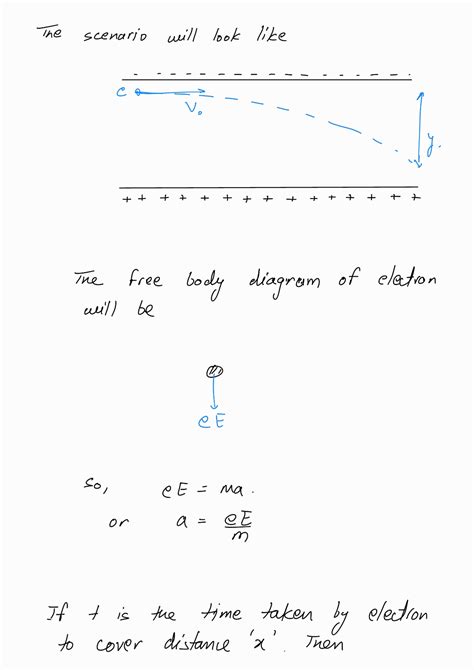 The scenario will look like
- - - - - - - - - - - - - - - - - -
e
V₀
y.
+ + + + + + + + + + + + + + +
The free body diagram of electron
will be
m
eE
so, eE = ma.
or a = eE/m
If t is the time taken by electron
to cover distance 'x'. Then